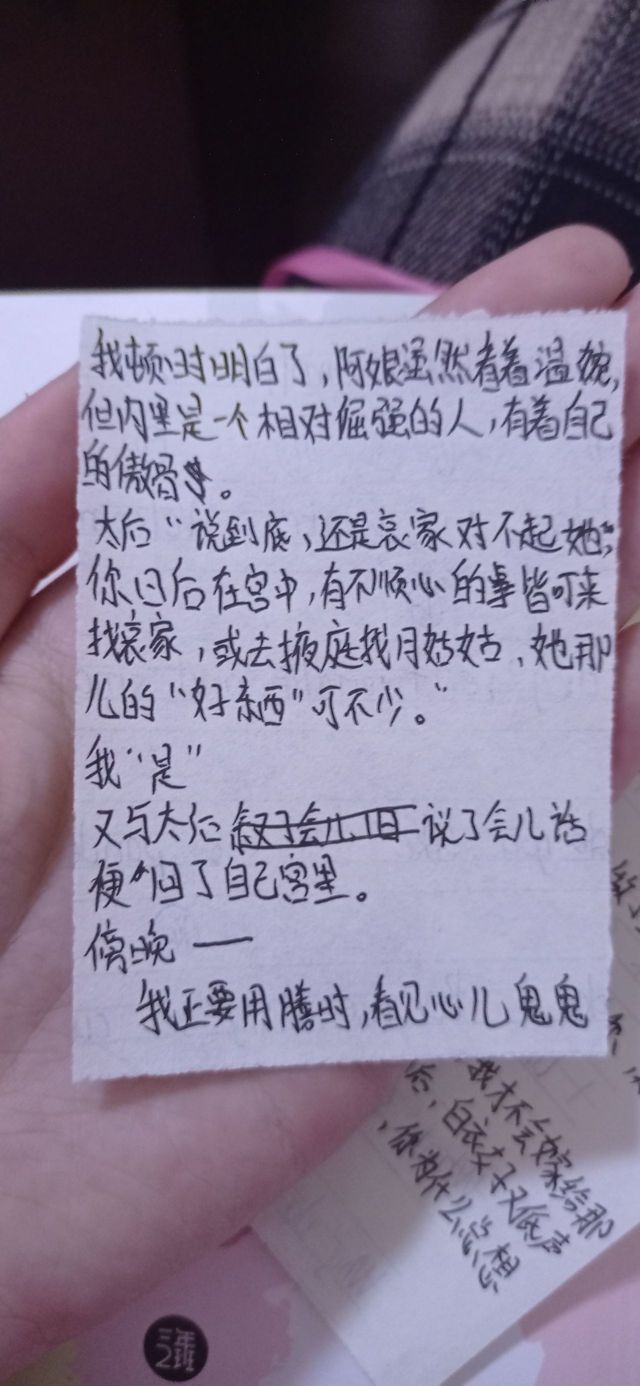 我顿时明白了，阿娘虽然看着温婉，
但内里是一个相对倔强的人，有着自己
的傲骨。
太后“说到底，还是哀家对不起她，
你日后在宫中，有不顺心的事皆可来
找哀家，或去掖庭找月姑姑，她那
儿的“好东西”可不少。”
我“是”
又与太后 说了会儿话
便归了自己宫里。
傍晚 ——
我正要用膳时，看见心儿鬼鬼
我才不会嫁给那
后，白衣女子又低声
，你为什么总想
三年
2班